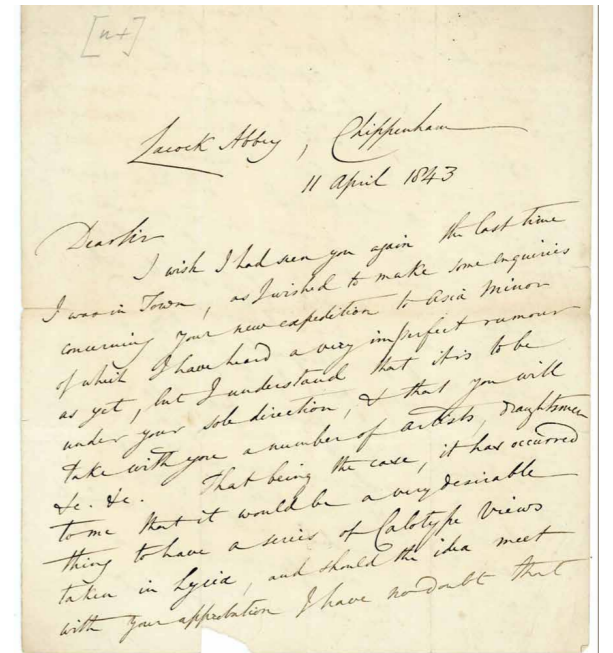 [n+]
Lacock Abbey, Chippenham
11 April 1843
Dear Sir
I wish I had seen you again the last time
I was in Town, as I wished to make some enquiries
concerning your new expedition to Asia Minor
of which I have heard a very imperfect rumour
as yet, but I understand that it is to be
under your sole direction, & that you will
take with you a number of artists, draughtsmen
&c. &c. That being the case, it has occurred
to me that it would be a very desirable
thing to have a series of Calotype Views
taken in Lycia, and should the idea meet
with your approbation I have no doubt that